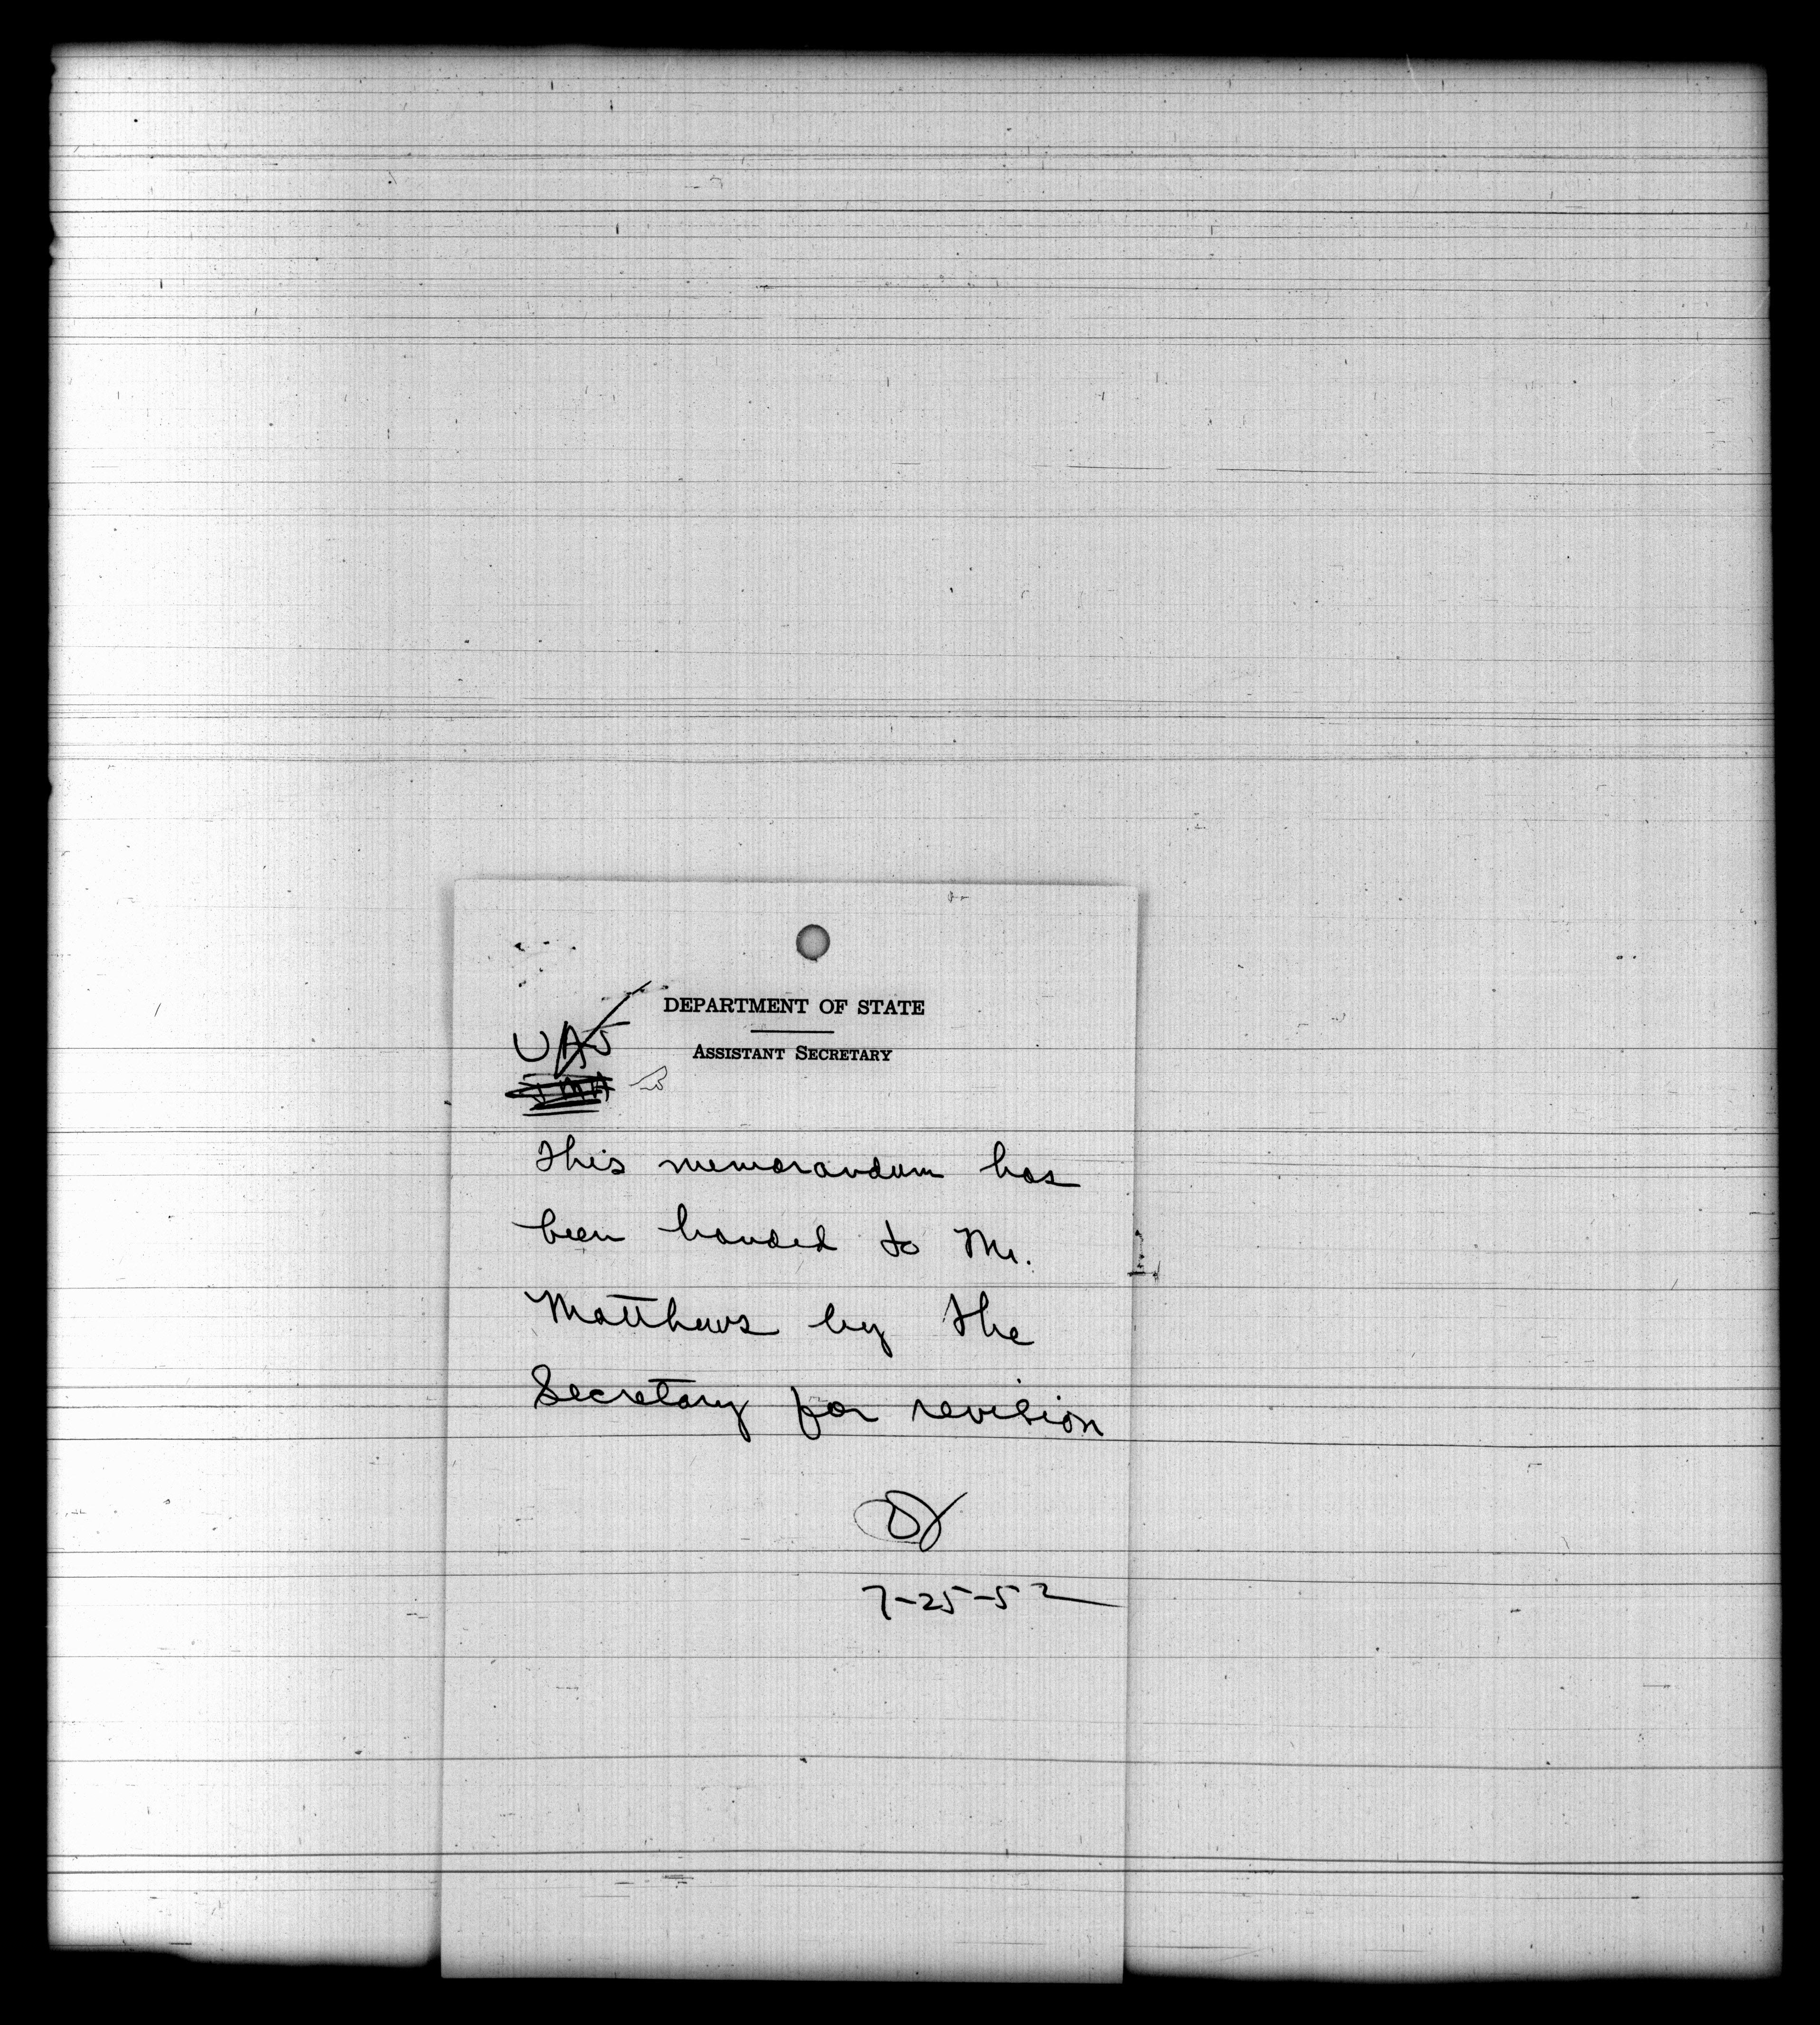 DEPARTMENT OF STATE
ASSISTANT SECRETARY
UAJ
This memorandum has
been handed to Mr.
Matthews by the
Secretary for revision
7-25-52